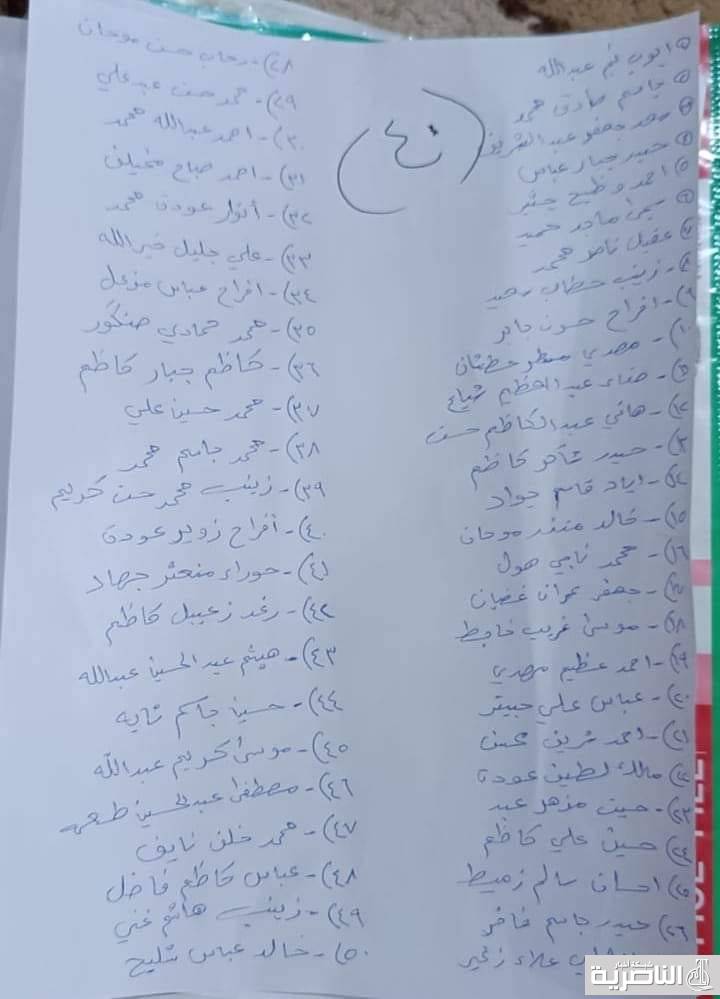 (٤٠)
١ ايوب نجم عبدالله
٢ جاسم صادق محمد
٣ محمد جعفر عبد الشريف
٤ حيدر جبار عباس
٥ احمد وظيح چثير
٦ ماجد حميد
٧ عقيل ناصر محمد
٨ - زينب حطاب سعيد
٩ - افراح حسون جابر
١٠ - مهدي مطر
١١ - صفاء عبد العظيم شياع
١٢ - هاني عبد الكاظم حسن
١٣ - حيدر شاكر كاظم
١٤ - اياد قاسم جواد
١٥ - خالد منذر موحان
١٦ - محمد ناهي هول
١٧ - جعفر عمران غضبان
١٨ - موسى غريب
١٩ - احمد عظيم مهدي
٢٠ - عباس علي
٢١ - احمد شريف محسن
٢٢ مالك لطيف عودة
٢٣ - حسين مزهر عبد
٢٤ حسين علي كاظم
٢٥ احسان سالم زميط
٢٦ حيدر جاسم فاخر
علاء زغير
٢٨) - رحاب حسن موحان
٢٩) - محمد حسن عبد علي
٣٠ - احمد عبدالله محمد
٣١) - احمد صباح مخيلف
٣٢) - أنوار عودة محمد
٣٣) - علي جليل خيرالله
٣٤) - افراح عباس مزعل
٣٥) - محمد حمادي صنگور
٣٦) - كاظم جبار كاظم
٣٧) - محمد حسين علي
٣٨) - محمد جاسم محمد
٣٩) - زينب محمد حسن كريم
٤٠) - أفراح زوير عودة
٤١) - حوراء منعثر جهاد
٤٢) - رغد زعيبل كاظم
٤٣) - هيثم عبد الحسين عبدالله
٤٤) - حسين جاسم ثايه
٤٥) - موسى كريم عبدالله
٤٦) - مصطفى عبد الحسين طعمه
٤٧) - محمد خلف نايف
٤٨) - عباس كاظم فاضل
٤٩) - زينب هاشم غني
٥٠) - خالد عباس شليج
شبكة أخبار
الناصرية